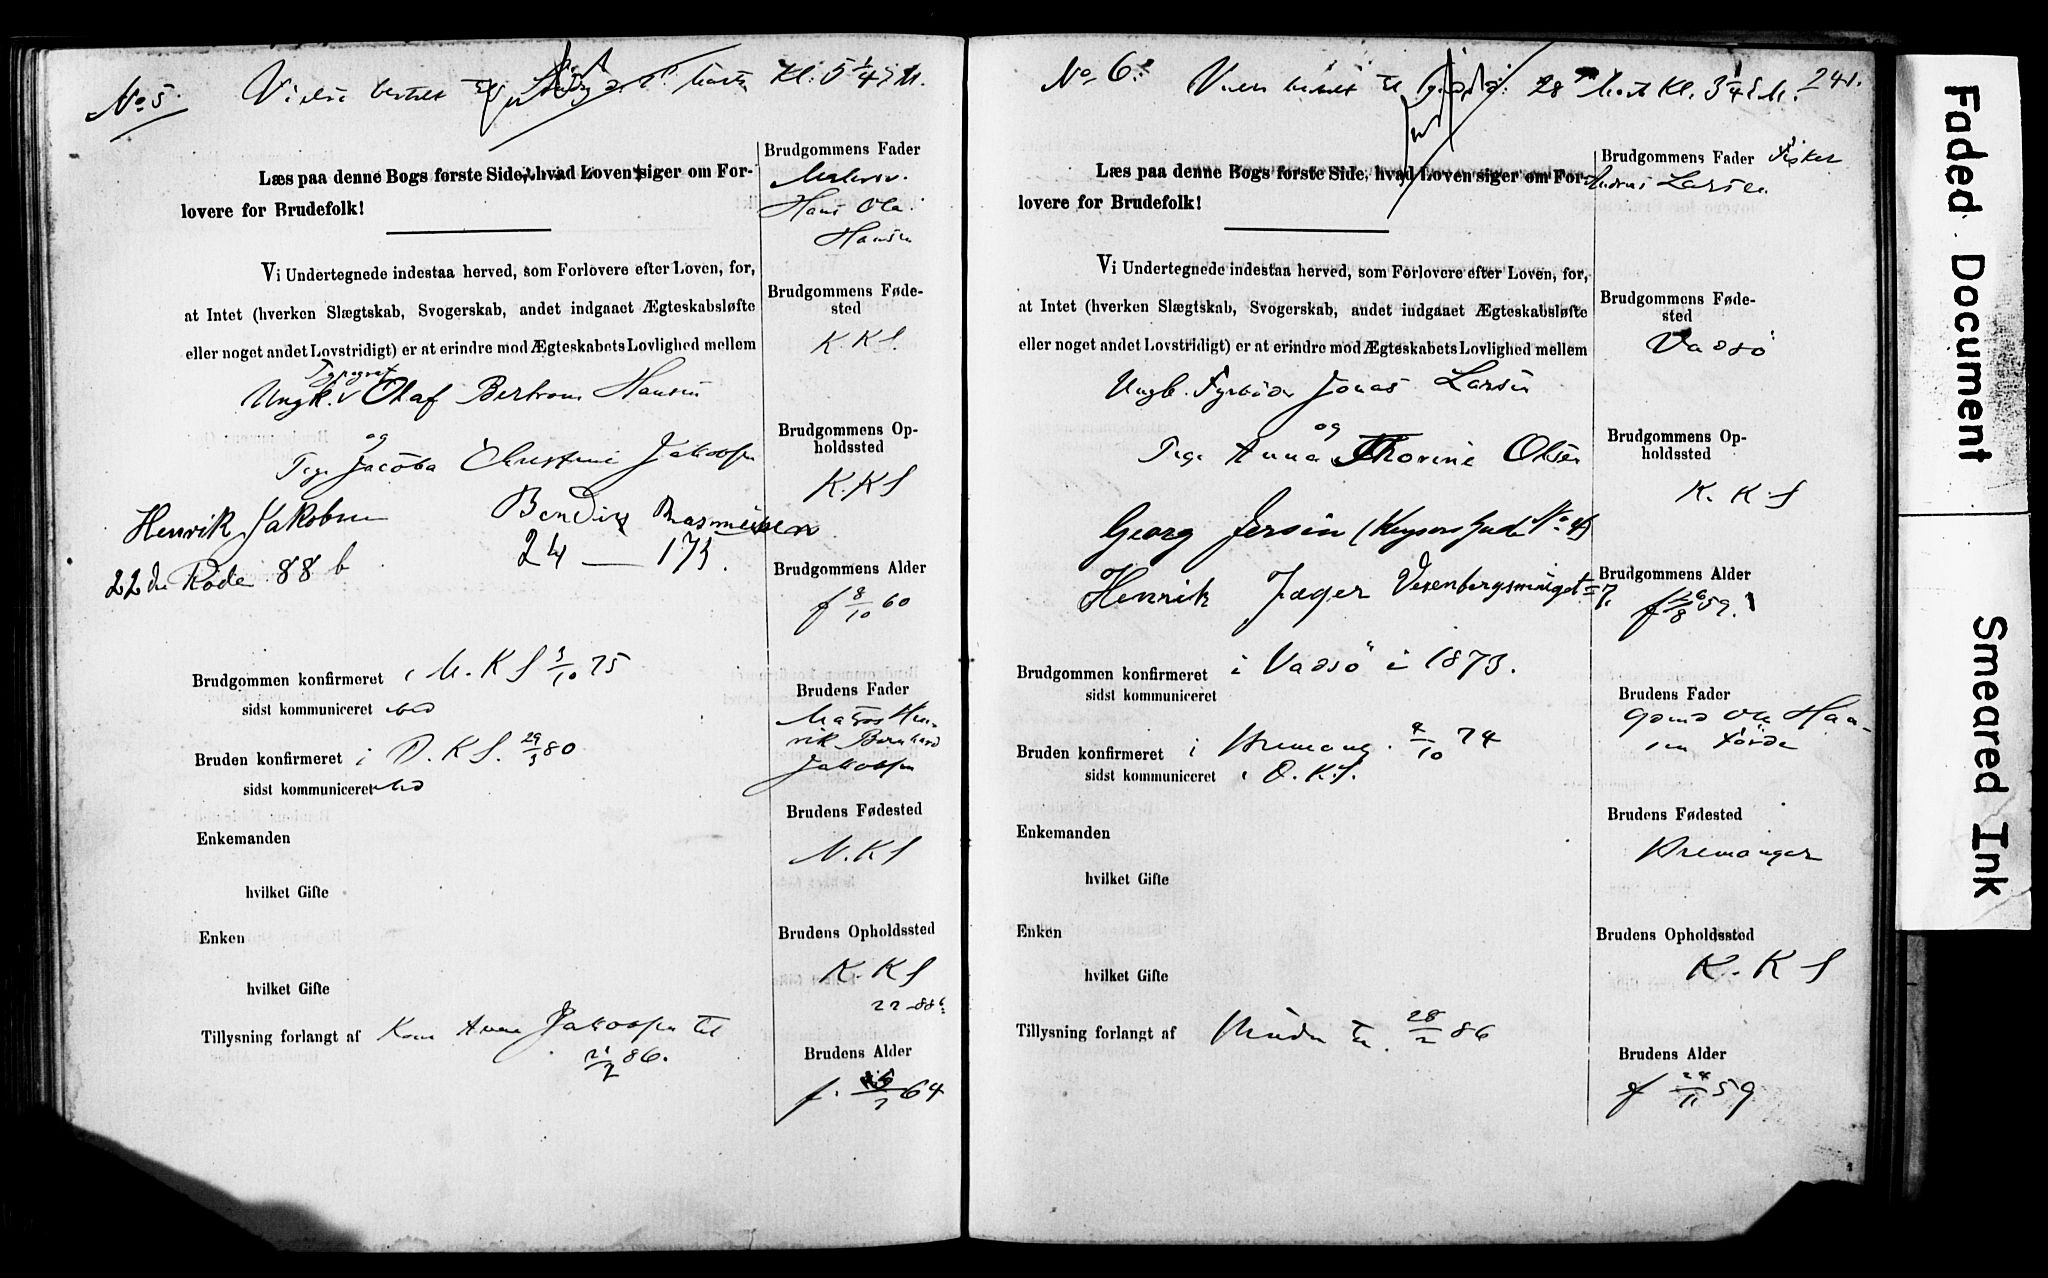 No 5.
Vielse bestilt til
Kl. 5 1/4
Læs paa denne Bogs første Side, hvad Loven siger om For-
lovere for Brudefolk!
Vi Undertegnede indestaa herved, som Forlovere efter Loven, for,
at Intet (hverken Slægtskab, Svogerskab, andet indgaaet Ægteskabsløfte
eller noget andet Lovstridigt) er at erindre mod Ægteskabets Lovlighed mellem
Typograf
Ungk. Olaf Bertram Hansen
og
Pige Jacoba Christine Jakobsen
Henrik Jakobsen
22de Rode 88 b
Bendix Rasmussen
24 — 173.
Brudgommen konfirmeret i M. K S 3/10 75
sidst kommuniceret
Bruden konfirmeret i D. K S. 29/3 80
sidst kommuniceret
Enkemanden
hvilket Gifte
Enken
hvilket Gifte
Tillysning forlangt af Kone Anna Jakobsen til
21/2 86.
Brudgommens Fader
Hans Ola
Hansen
Brudgommens Føde-
sted
K. K S.
Brudgommens Op-
holdssted
K. K S
Brudgommens Alder
f 8/10 60
Brudens Fader
Matros Hen-
rik Bernhard
Jakobsen
Brudens Fødested
N. K S
Brudens Opholdssted
K. K S
22-88b
Brudens Alder
f. /7 64
No. 6.
241.
28 Kl. 3 1/4
Læs paa denne Bogs første Side, hvad Loven siger om For-
lovere for Brudefolk!
Vi Undertegnede indestaa herved, som Forlovere efter Loven, for,
at Intet (hverken Slægtskab, Svogerskab, andet indgaaet Ægteskabsløfte
eller noget andet Lovstridigt) er at erindre mod Ægteskabets Lovlighed mellem
Ungk. Fyrbøder Jonas Larsen
og
Pige Anna Thorine Olsen
Georg Jersin (Keysersgade No 4)
Henrik Jæger Vesenbergsmuget 7.
Brudgommen konfirmeret i Vadsö i 1873.
sidst kommuniceret
Bruden konfirmeret i Bremang. 4/10 74
sidst kommuniceret i D. K. S.
Enkemanden
hvilket Gifte
Enken
hvilket Gifte
Tillysning forlangt af Bruden til. 28/2 86
Brudgommens Fader Fisker
Andreas Larsen
Brudgommens Føde-
sted
Vadsö
Brudgommens Op-
holdssted
K. K S
Brudgommens Alder
f /8 59.
Brudens Fader
Gbmd Ole Han-
sen Förde
Brudens Fødested
Bremanger
Brudens Opholdssted
K. K S
Brudens Alder
f 24/11 59
Faded Document
Smeared Ink